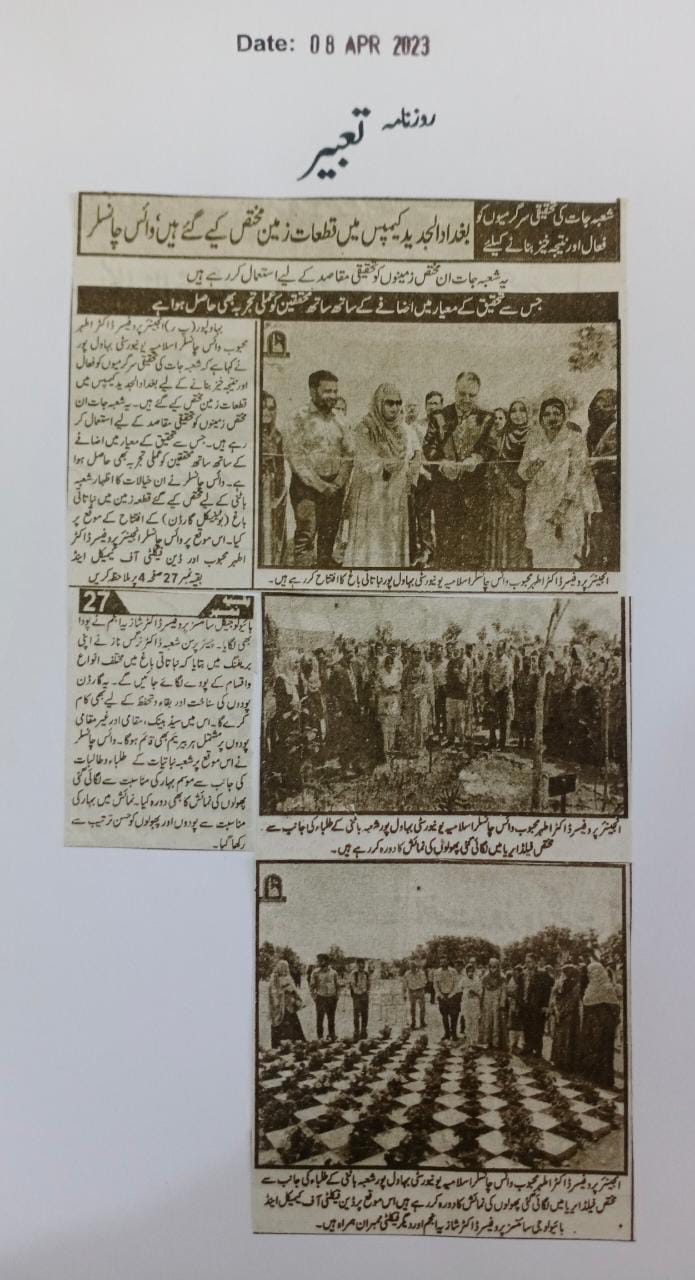 Date: 08 APR 2023
روزنامہ تعبیر
شعبہ جات کی تحقیقی سرگرمیوں کو
فعال اور نتیجہ خیز بنانے کیلئے
بغداد الجدید کیمپس میں قطعات زمین مختص کیے گئے ہیں، وائس چانسلر
یہ شعبہ جات ان مختص زمینوں کو تحقیقی مقاصد کے لیے استعمال کر رہے ہیں
جس سے تحقیق کے معیار میں اضافے کے ساتھ ساتھ محققین کو عملی تجربہ بھی حاصل ہوا ہے
بہاولپور (پ ر) انجینئر پروفیسر ڈاکٹر اطہر
محبوب وائس چانسلر اسلامیہ یونیورسٹی بہاول پور
نے کہا ہے کہ شعبہ جات کی تحقیقی سرگرمیوں کو فعال
اور نتیجہ خیز بنانے کے لیے بغداد الجدید کیمپس میں
قطعات زمین مختص کیے گئے ہیں۔ یہ شعبہ جات ان
مختص زمینوں کو تحقیقی مقاصد کے لیے استعمال کر
رہے ہیں۔ جس سے تحقیق کے معیار میں اضافے
کے ساتھ ساتھ محققین کو عملی تجربہ بھی حاصل ہوا
ہے۔ وائس چانسلر نے ان خیالات کا اظہار شعبہ
باٹنی کے لیے مختص کیے گئے قطعہ زمین میں نباتاتی
باغ (بوٹینیکل گارڈن) کے افتتاح کے موقع پر
کیا۔ اس موقع پر وائس چانسلر انجینئر پروفیسر ڈاکٹر
اطہر محبوب اور ڈین فیکلٹی آف کیمیکل اینڈ
بقیہ نمبر 27 صفحہ 4 پر ملاحظہ کریں
بقیہ نمبر 27
بائیولوجیکل سائنسز پروفیسر ڈاکٹر شازیہ انجم نے پودا
بھی لگایا۔ چیئرپرسن شعبہ ڈاکٹر نرگس ناز نے اپنی
بریفنگ میں بتایا کہ نباتاتی باغ میں مختلف انواع
واقسام کے پودے لگائے جائیں گے۔ یہ گارڈن
پودوں کی ساخت اور بقاء و تحفظ کے لیے بھی کام
کرے گا۔ اس میں سیڈ بینک، مقامی اور غیر مقامی
پودوں پر مشتمل ہربیریم بھی قائم ہوگا۔ وائس چانسلر
نے اس موقع پر شعبہ نباتیات کے طلباء و طالبات
کی جانب سے موسم بہار کی مناسبت سے لگائی گئی
پھولوں کی نمائش کا بھی دورہ کیا۔ نمائش میں بہار کی
مناسبت سے پودوں اور پھولوں کو حسن ترتیب سے
رکھا گیا۔
انجینئر پروفیسر ڈاکٹر اطہر محبوب وائس چانسلر اسلامیہ یونیورسٹی بہاول پور نباتاتی باغ کا افتتاح کر رہے ہیں۔
انجینئر پروفیسر ڈاکٹر اطہر محبوب وائس چانسلر اسلامیہ یونیورسٹی بہاول پور شعبہ باٹنی کے طلباء کی جانب سے
مختص فیلڈ ایریا میں لگائی گئی پھولوں کی نمائش کا دورہ کر رہے ہیں۔
انجینئر پروفیسر ڈاکٹر اطہر محبوب وائس چانسلر اسلامیہ یونیورسٹی بہاول پور شعبہ باٹنی کے طلباء کی جانب سے
مختص فیلڈ ایریا میں لگائی گئی پھولوں کی نمائش کا دورہ کر رہے ہیں اس موقع پر ڈین فیکلٹی آف کیمیکل اینڈ
بائیولوجی سائنسز پروفیسر ڈاکٹر شازیہ انجم اور دیگر فیکلٹی ممبران ہمراہ ہیں۔